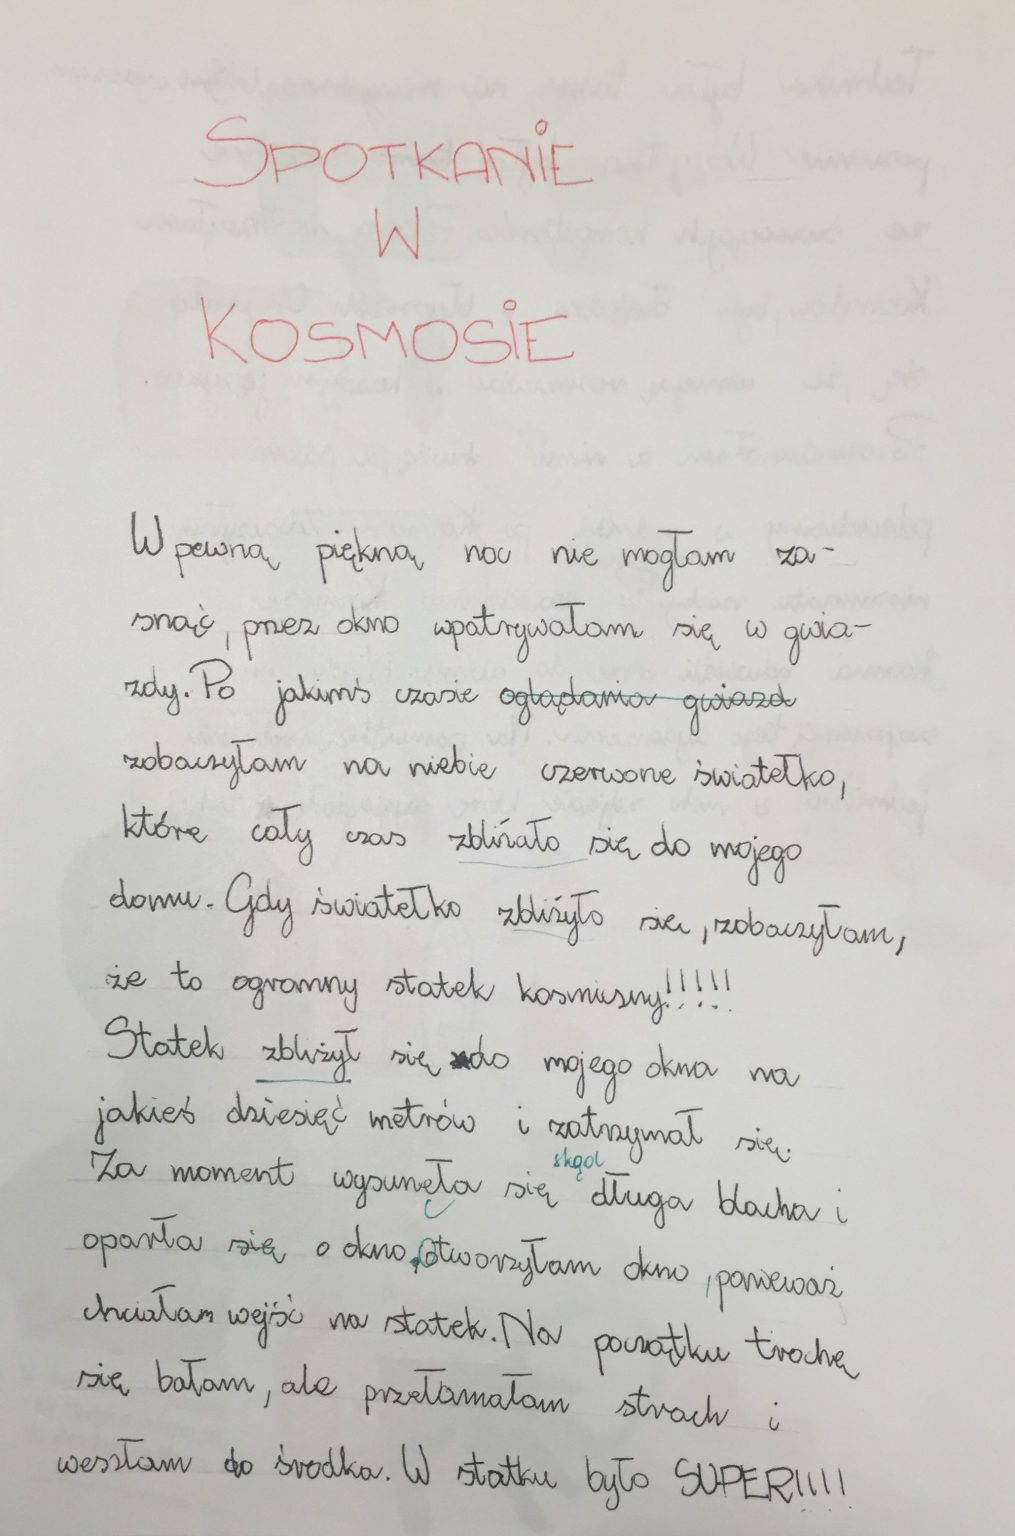 SPOTKANIE
W
KOSMOSIE
W pewną piękną noc nie mogłam za-
snąć, przez okno wpatrywałam się w gwia-
zdy. Po jakimś czasie oglądania gwiazd
zobaczyłam na niebie czerwone światełko,
które cały czas zbliżało się do mojego
domu. Gdy światełko zbliżyło się, zobaczyłam,
że to ogromny statek kosmiczny!!!!!
Statek zbliżył się do mojego okna na
jakieś dziesięć metrów i zatrzymał się.
skąd
Za moment wysunęła się długa blacha i
oparła się o okno. Otworzyłam okno, ponieważ
chciałam wejść na statek. Na początku trochę
się bałam, ale przełamałam strach i
weszłam do środka. W statku było SUPER!!!!